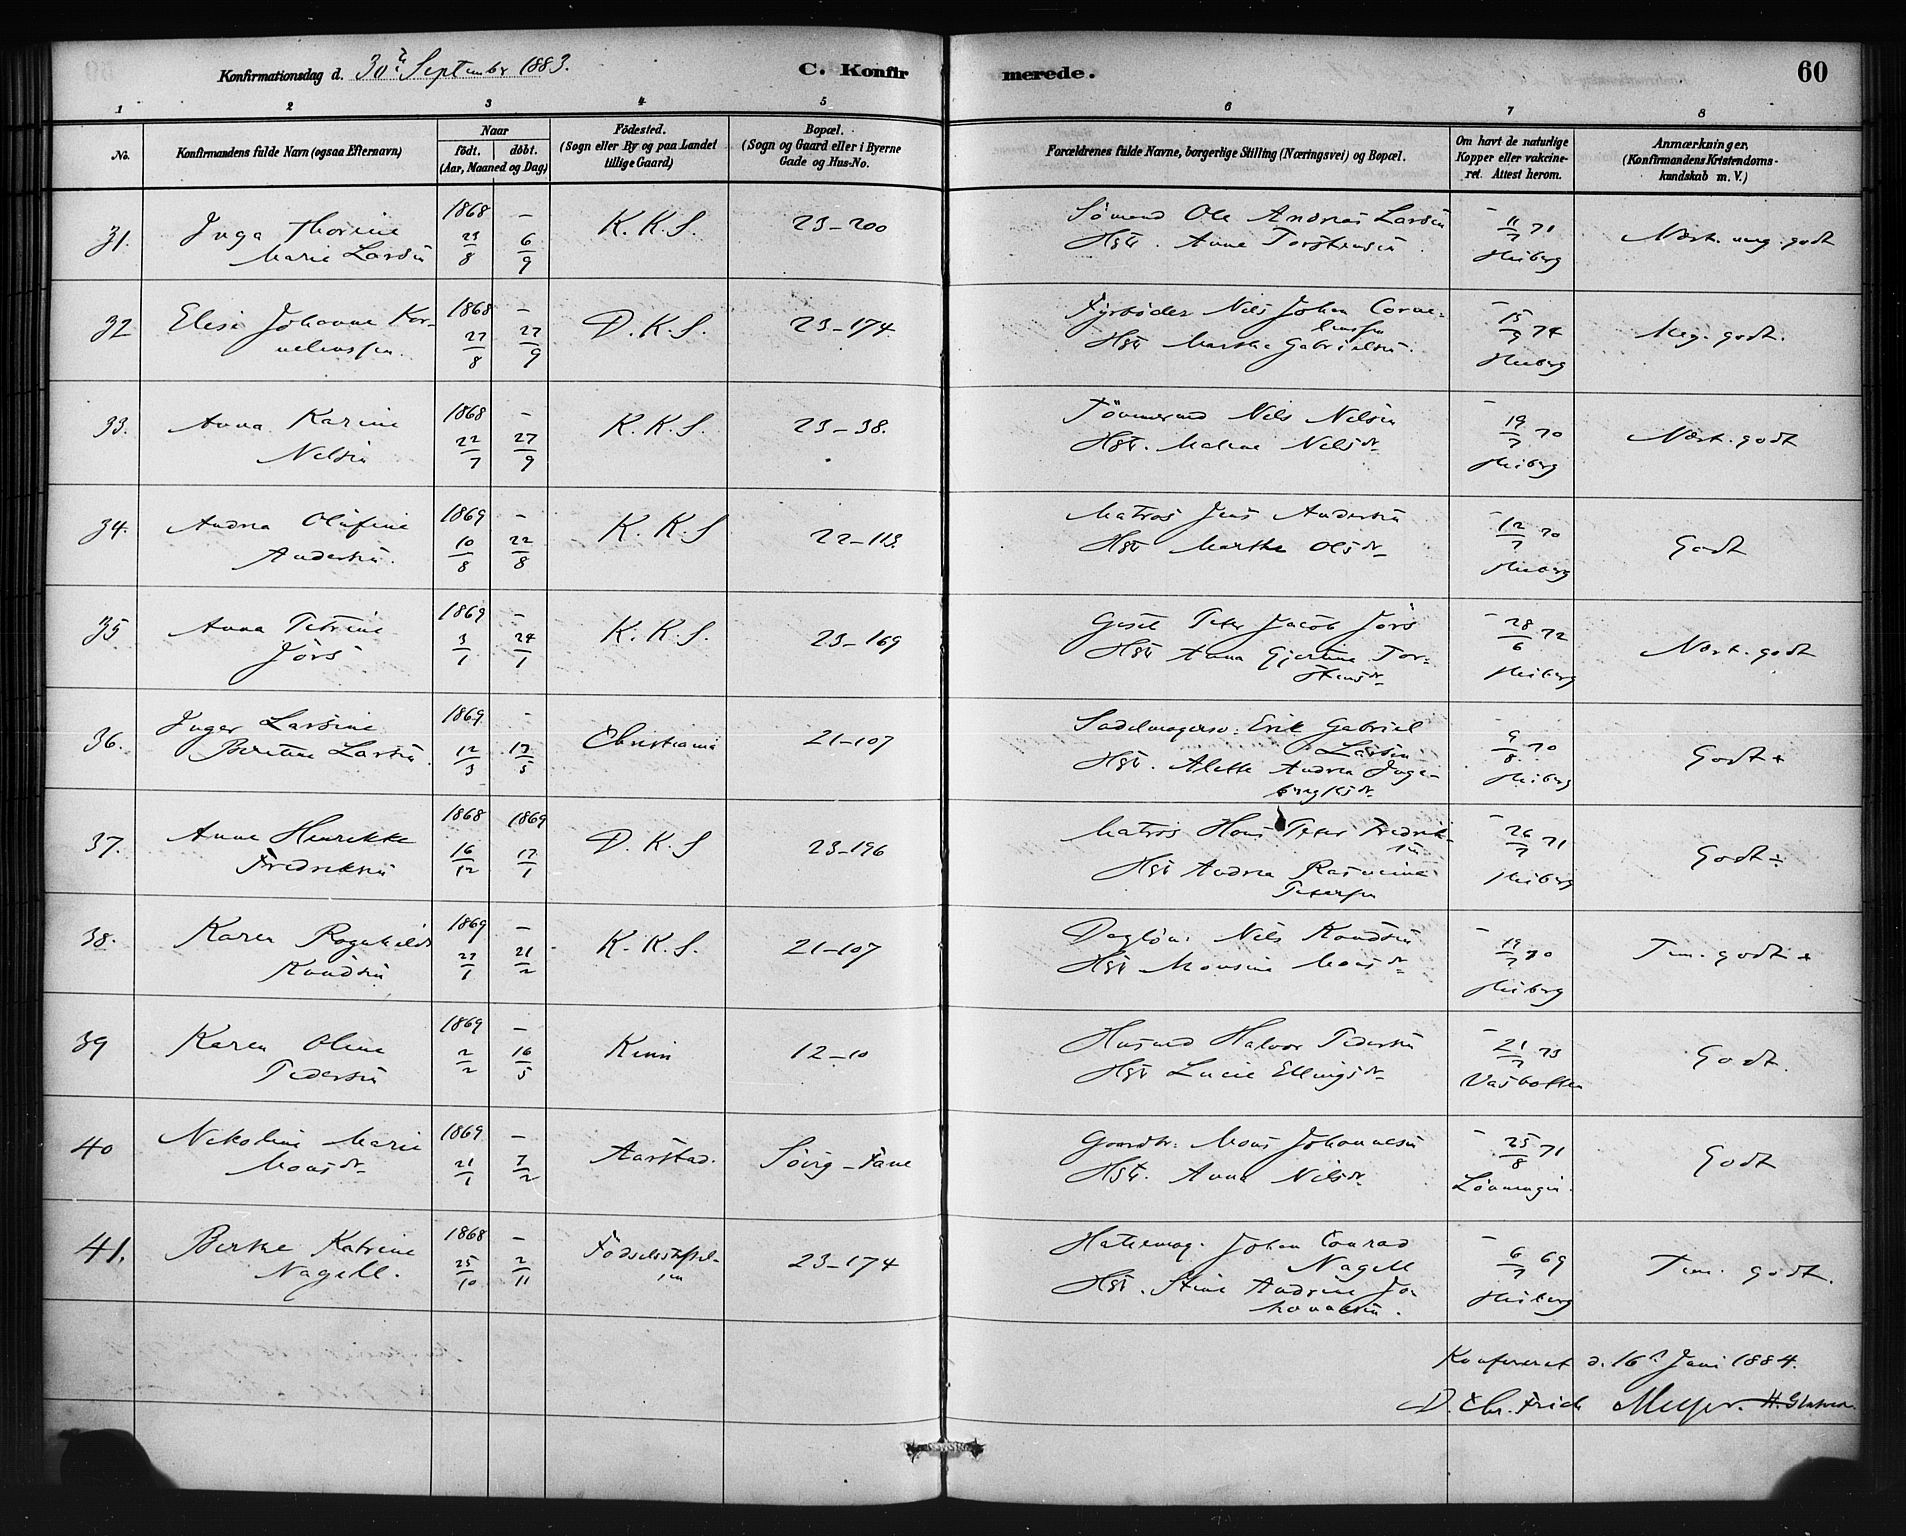 Konfirmationsdag d. 30te September 1883.
C. Konfirmerede.
60
1 2 3 4 5 6 7 8
No.
Konfirmandens fulde Navn (ogsaa Efternavn)
Naar
födt. döbt.
(Aar, Maaned og Dag)
Födested.
(Sogn eller By og paa Landet
tillige Gaard)
Bopæl.
(Sogn og Gaard eller i Byerne
Gade og Hus-No.
Forældrenes fulde Navne, borgerlige Stilling (Næringsvei) og Bopæl.
Om havt de naturlige
Kopper eller vakcine-
ret. Attest herom.
Anmærkninger,
(Konfirmandens Kristendoms-
kundskab m. V.)
31. Inga Thorine
Marie Larsen
1868 23/8 – 6/9
K. K. S.
23–200
Sømand Ole Andreas Larsen
Hst. Anna Torstensen
– 11/7 71
Heiberg
Næst. meg. godt
32 Elise Johanne Kor-
neliussen.
1868 27/8 – 27/9
D. K. S.
23–174.
Fyrbøder Nils Johan Corne-
liussen
Hst. Marthe Gabrielsen.
– 15/9 74
Heiberg
Meg. godt.
33. Anna Karine
Nelsen
1868 22/7 – 27/9
K. K. S.
23–38.
Tømmermd Nils Nelsen
Hst. Malene Nelsdr
– 19/7 70
Heiberg
Næst. godt
34. Andrea Olufine
Andersen.
1869 10/8 – 22/8
K. K. S
22–113.
Matros Jens Andersen
Hst Marthe Olsdr
12/7 70
Heiberg
Godt
35 Anna Petrine
Jörs
1869 3/1 – 24/1
K. K. S.
23–169
Gesel Peter Jacob Jörs
Hst Anna Gjertine Tor-
stensdr
– 28/6 72
Heiberg
Næst. godt
36. Inger Larsine
Bertine Larsen.
1869 12/3 – 17/5
Christiania
21–107
Sadelmagersv. Erik Gabriel
Larsen
Hst. Alette Andrea Inge-
brigtsdr
– 9/8 70
Heiberg
Godt +
37. Anne Henrikke
Fredriksen
1868 16/12 1869 17/1
D. K. S
23–196
Matros Hans Peter Fredrik-
sen
Hst Andrea Rasmine
Petersen
– 26/7 71
Heiberg
Godt ÷
38. Karen Ragnhild
Knudsen
1869 27/1 – 21/2
K. K. S.
21–107
Dagløn. Nils Knudsen
Hst Monsine Monsdr
– 19/7 70
Heiberg
Tem. godt +
39 Karen Oline
Pedersen
1869 2/2 – 16/5
Kinn
12–10
Husmd Halvor Pedersen
Hst Lucie Ellingsdr
– 21/7 73
Godt.
40 Nikoline Marie
Monsdr
1869 21/1 – 7/2
Aarstad.
– Fane
Gaardbr. Mons Johannesen
Hst. Anna Nilsdr
– 25/8 71
Lønningen.
Godt
41. Berthe Katrine
Nagell.
1868 25/10 – 2/11
Fødselsstiftel-
sen
23–174
Hattemag. Johan Conrad
Nagell
Hst. Stine Andrine Jo-
hannesen.
– 6/7 69
Heiberg
Tem. godt.
Konfereret d. 16de Juni 1884.
D. Chr. Frich Meyer.